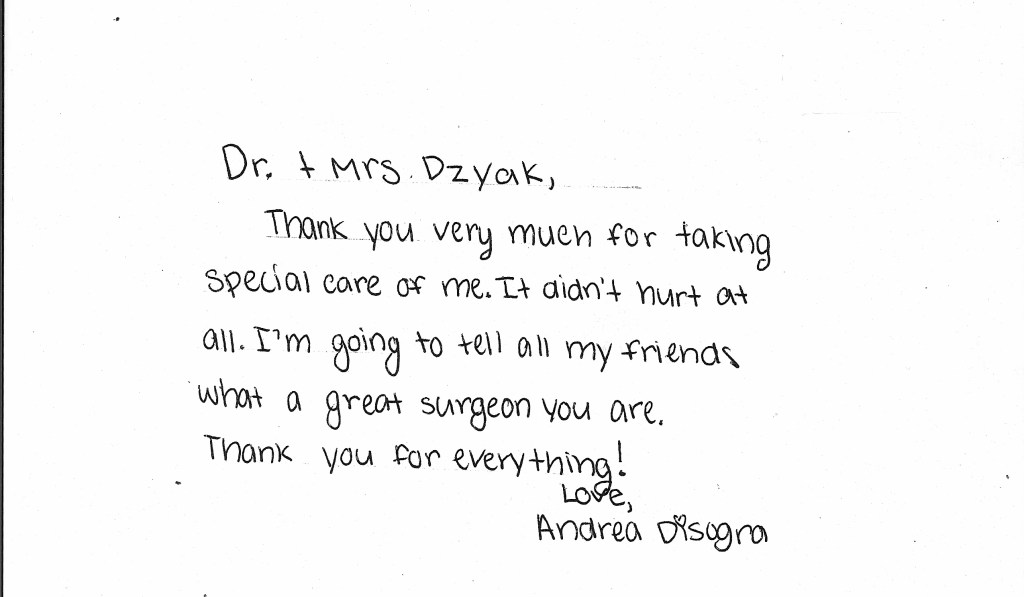 Dr. + Mrs. Dzyak,
Thank you very much for taking
special care of me. It didn't hurt at
all. I'm going to tell all my friends
what a great surgeon you are.
Thank you for everything!
Love,
Andrea Disogra